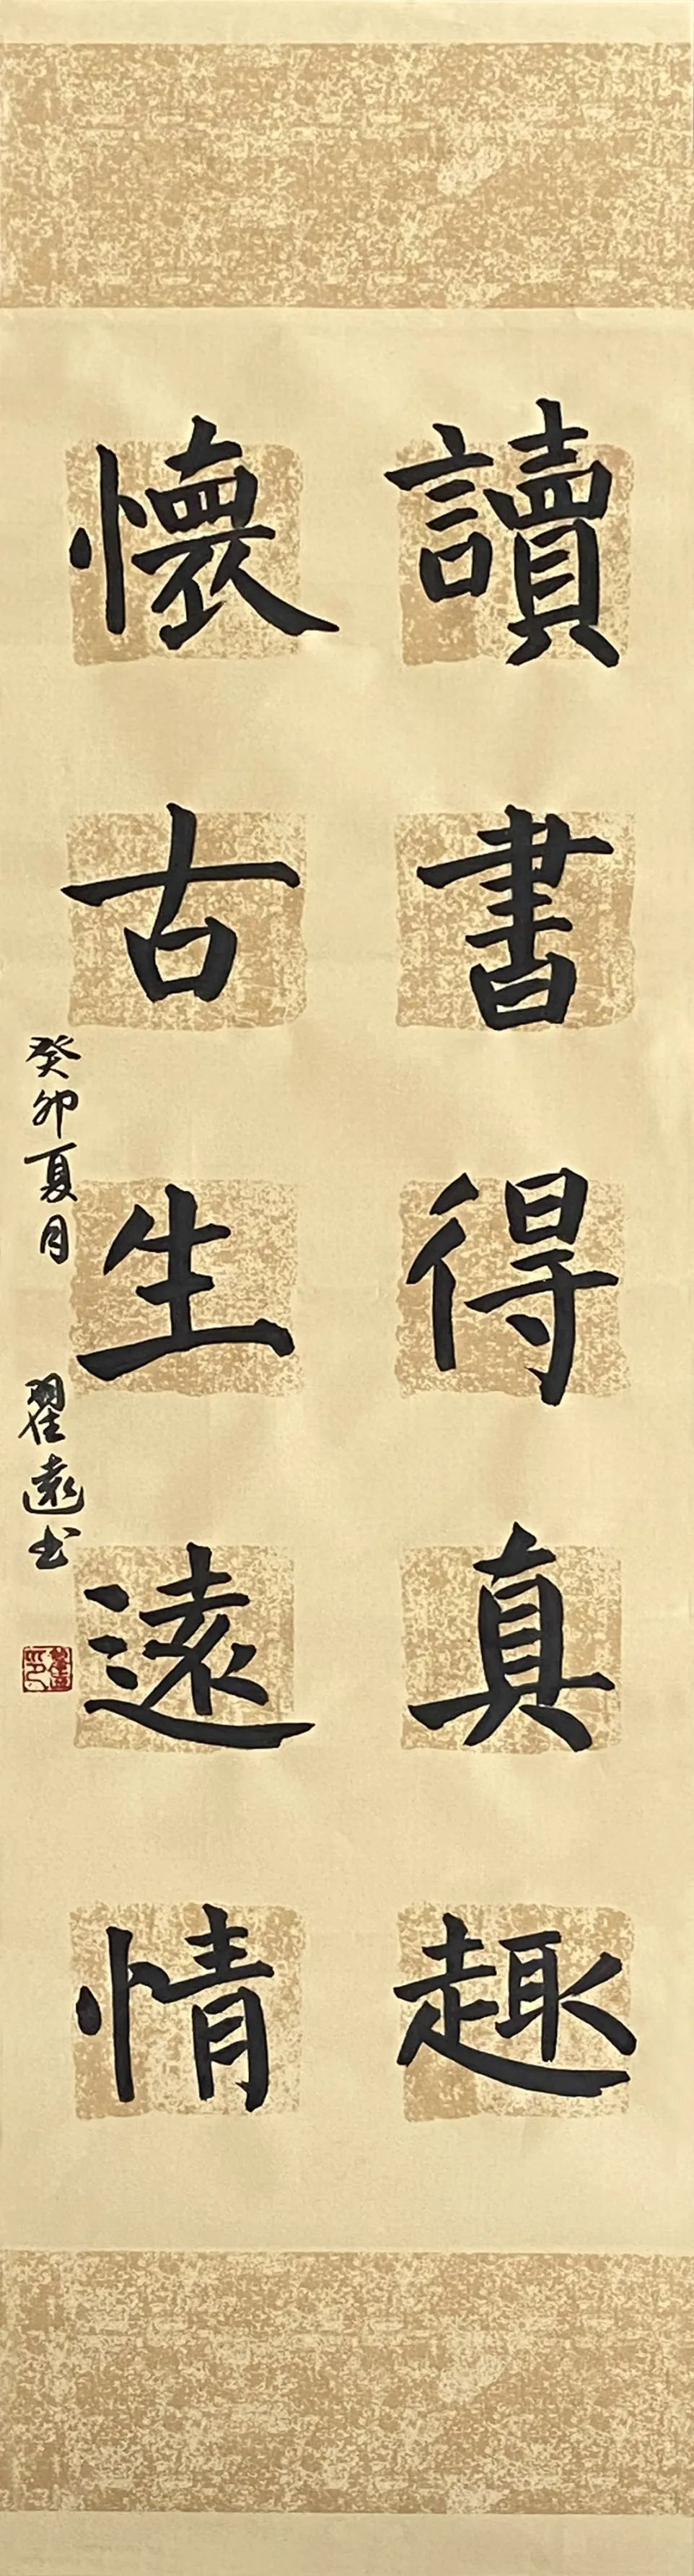 讀書得真趣
懷古生遠情
癸卯夏月 翟遠书